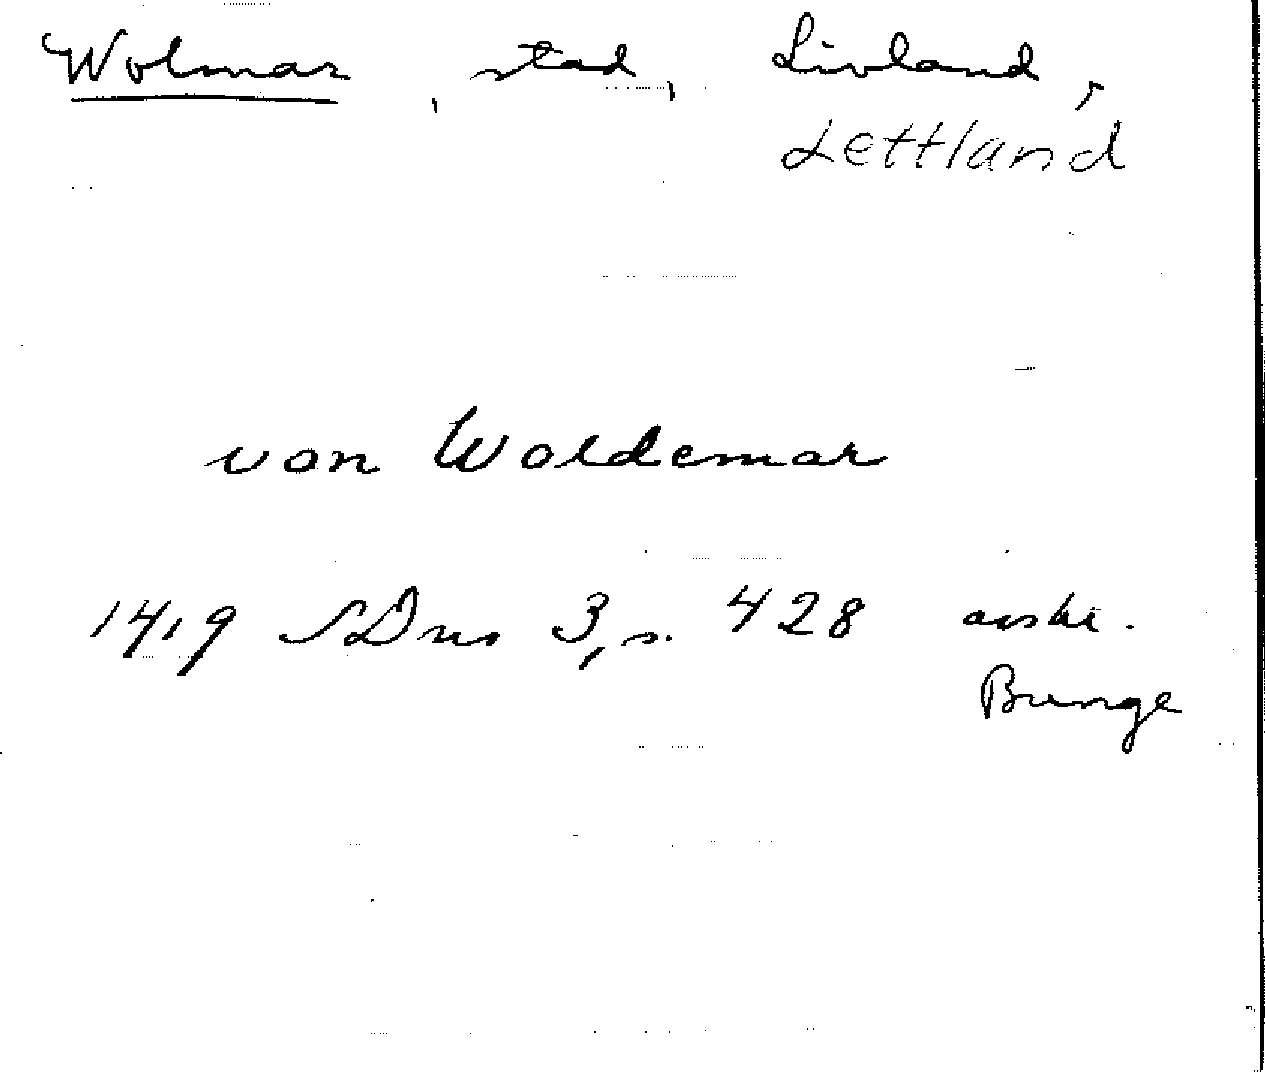 Wolmar, stad, Livland,
Lettland
von Woldemar
1419 SDns 3, s. 428 avskr.
Bunge